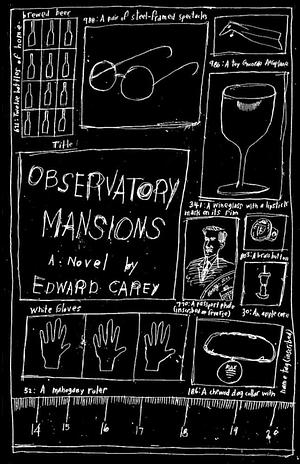 brewed beer
611: Twelve bottles of home
988: A pair of steel-framed spectacles
986: A toy
Title
OBSERVATORY
MANSIONS
A Novel by
EDWARD CAREY
347: A wineglass with a lipstick
mark on its rim
770: A passport photo
(inscribed on reverse)
A brass button
30: An apple core
White Gloves
MAX
186: A chewed dog collar with
name tag (inscribed)
52: A mahogany ruler
14 15 16 17 18 19 20